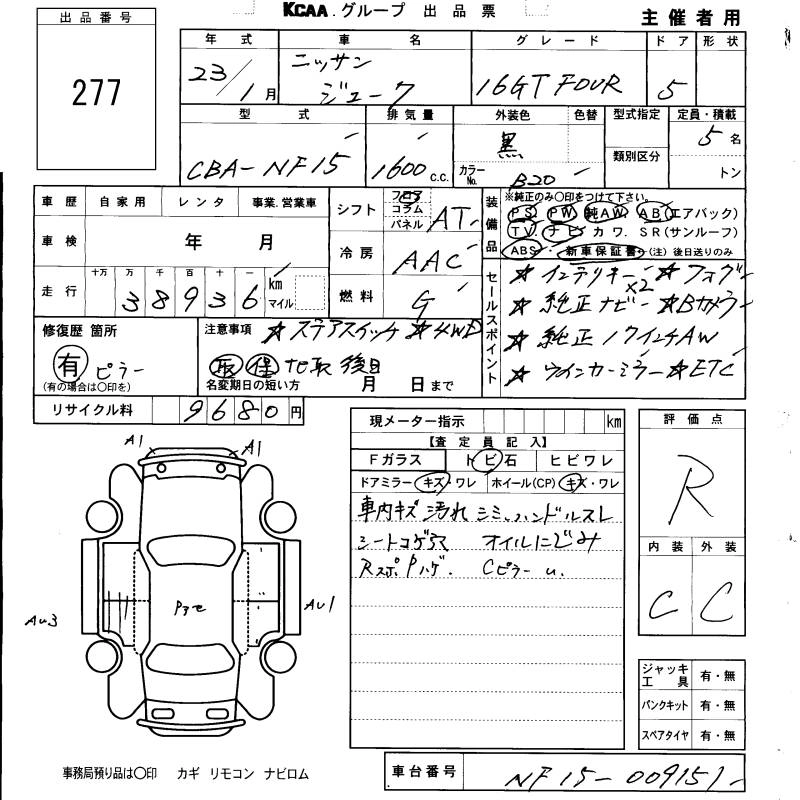 KCAA.グループ 出品票
主催者用
出品番号
277
年式 車名 グレード ドア 形状
23/1月 ニッサン ジューク 16GT FOUR 5
型式 排気量 外装色 色替 型式指定 定員・積載
CBA-NF15 1600 c.c. 黒 類別区分 5名
カラーNo. B20 トン
車歴 自家用 レンタ 事業.営業車
シフト フロア コラム パネル AT
車検 年 月
冷房 AAC
走行 十万 万 千 百 十 一
38936 km マイル
燃料 G
装備品 ※純正のみ○印をつけて下さい。
PS PW 純AW AB(エアバック)
TV. ナビ カワ. SR(サンルーフ)
ABS. 新車保証書.(注)後日送りのみ
セールスポイント
★インテリキー×2 ★フォグ
★純正ナビ ★Bカメラ
★純正17インチAW
★ウインカーミラー ★ETC
修復歴 箇所
有 ピラー
(有の場合は○印を)
注意事項 ★ステアスイッチ ★4WD
取 保 ナビ取 後日
名変期日の短い方 月 日まで
リサイクル料 9680円
現メーター指示 km
【査定員記入】
Fガラス トビ石 ヒビワレ
ドアミラー キズ・ワレ ホイール(CP) キズ・ワレ
車内キズ 汚れ シミ ハンドルスレ
シートコゲ穴 オイルにじみ
Rスポ Pハゲ. Cピラー u.
評価点
R
内装 外装
C C
A1 A1
Au3 Au1
ジャッキ工具 有・無
パンクキット 有・無
スペアタイヤ 有・無
事務局預り品は○印 カギ リモコン ナビロム
車台番号 NF15-009151